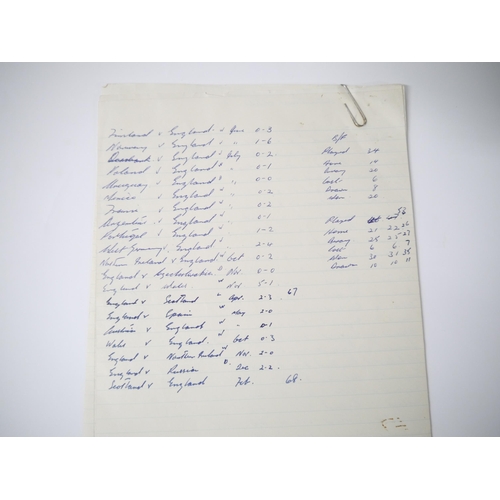 Finland v England v June 0-3
Norway v England v " 1-6
Denmark v England v July 0-2
Poland v England v " 0-1
Uruguay v England " 0-0
Mexico v England v " 0-2
France v England v " 0-2
Argentina v England v " 0-1
Portugal v England v " 1-2
West Germany v England v " 2-4
Northern Ireland v England v Oct 0-2
England v Czechoslovakia v Nov. 0-0
England v Wales v Nov 5-1
England v Scotland " Apr. 2-3. 67
England v Spain " May 2-0
Austria v England v " 0-1
Wales v England v Oct 0-3
England v Northern Ireland v Nov. 2-0
England v Russia D. Dec 2-2.
Scotland v England Feb. 68.
B/F
Played 24
Home 10
Away 20
Lost 6
Drawn 8
Won 20
Played
Home 21 22
Away 25 25 27
Lost 6 6 7
Won 30 31 35
Drawn 10 10 11